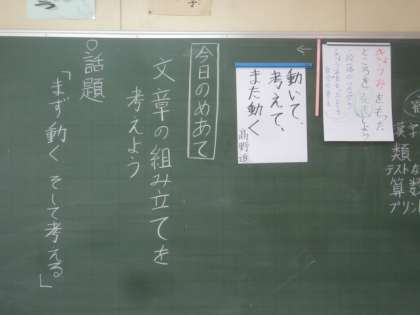 きょうみをもった
ところを
動いて、
考えて、
また動く
高野進
今日のめあて
文章の組み立てを
考えよう
○話題
「まず動く そして考える」
類
テスト
算
プリン